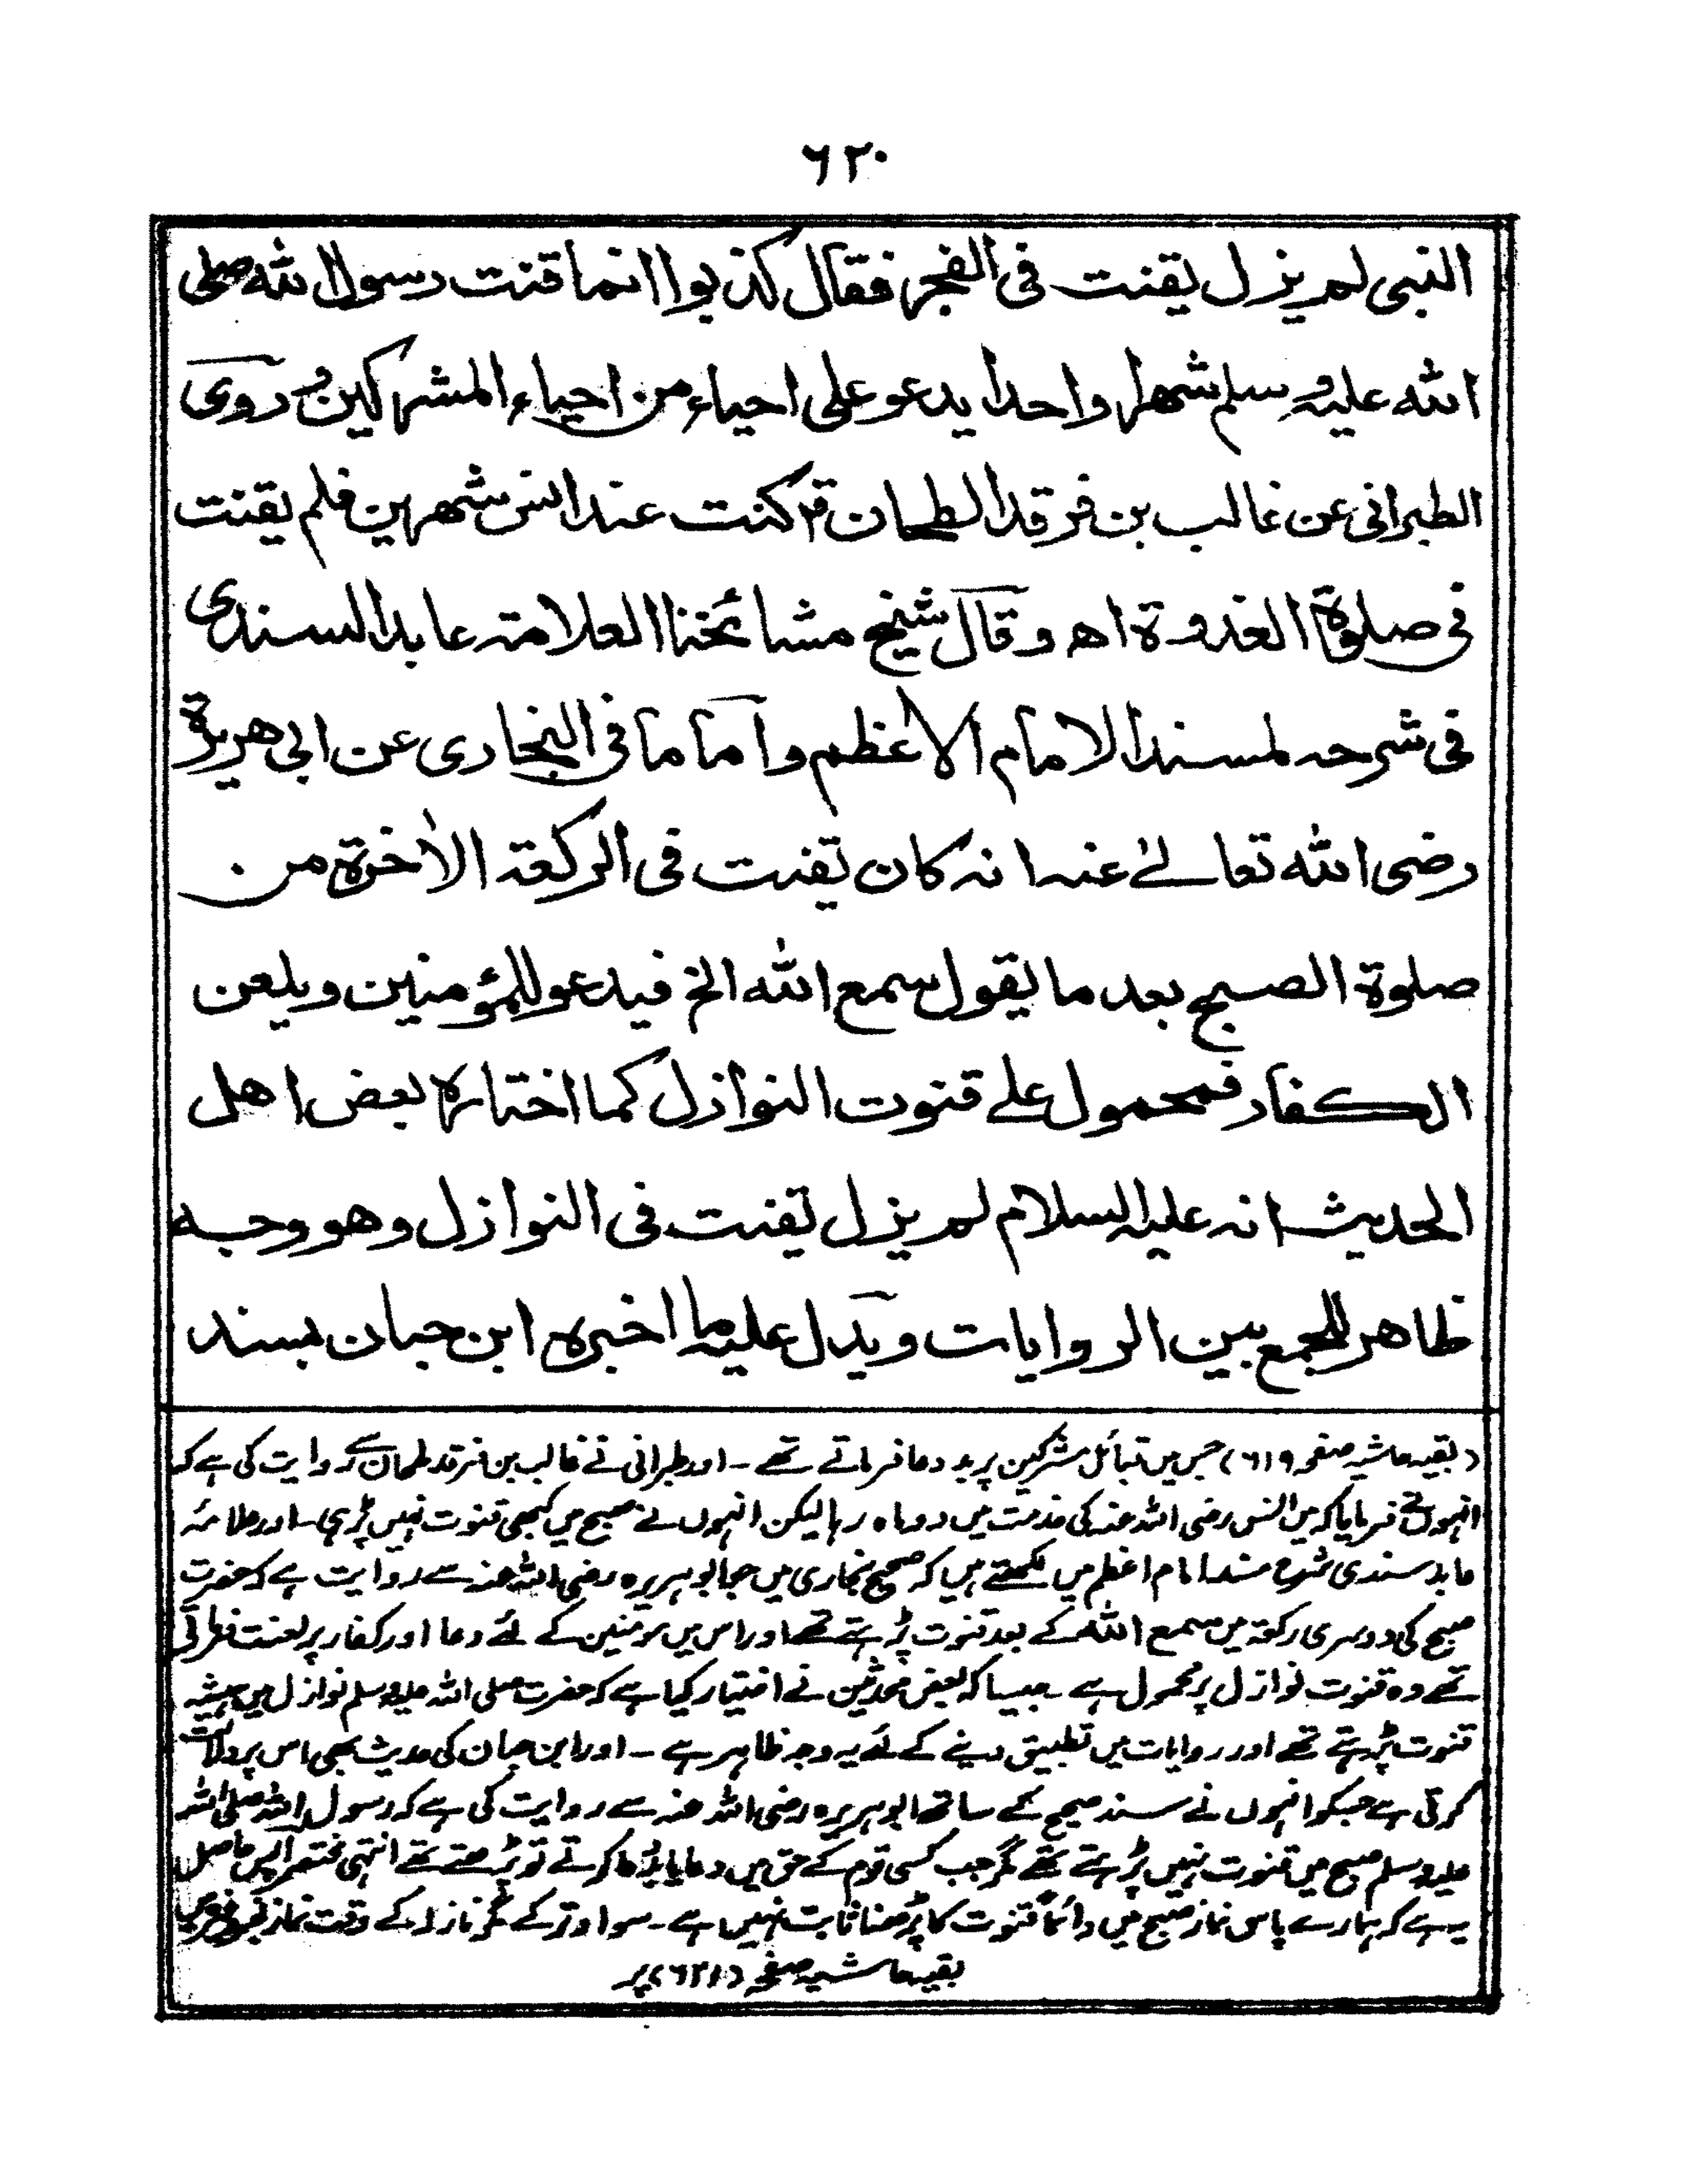 ۶۲۰
النبی لم یزل یقنت فی الفجر فقال کذبوا انما قنت رسول اللّٰه صلی
اللّٰه علیہ وسلم شهرا واحدا یدعو علی احیاء من احیاء المشرکین وروی
الطبرانی عن غالب بن فرقد الطحان قر کنت عند انس شهرین فلم یقنت
فی صلوة الغدوة اھ وقال شیخ مشائخنا العلامۃ عابد السندی
فی شرحہ لمسند الامام الاعظم واما ما فی البخاری عن ابی هریرة
رضی اللّٰه تعالےٰ عنہ انہ کان تقنت فی الرکعۃ الاٰخرة من
صلوة الصبح بعد ما یقول سمع اللّٰه الخ فیدعو للمؤمنین ویلعن
الکفار فمحمول علے قنوت النوازل کما اختارہ بعض اهل
الحدیث انہ علیہ السلام لم یزل تقنت فی النوازل وهو وجہ
ظاهر للجمع بین الروایات ویدل علیہ ما اخبرہ ابن حبان بسند
(بقیہ حاشیہ صفحہ ۶۱۹) جس میں قبائل مشرکین پر بد دعا فرماتے تھے ۔ اور طبرانی نے غالب بن فرقد طحان سے روایت کی ہے کہ
انہوں نے فرمایا کہ میں انس رضی اللّٰه عنہ کی خدمت میں دو ماہ رہا لیکن انہوں نے صبح میں کبھی قنوت نہیں پڑہی ۔ اور علامہ
عابد سندی شرح مسند امام اعظم میں لکھتے ہیں کہ صحیح بخاری میں جو ابو ہریرہ رضی اللّٰه عنہ سے روایت ہے کہ حضرت
صبح کی دوسری رکعۃ میں سمع اللّٰه کے بعد قنوت پڑہتے تھے اور اس میں مومنین کے لئے دعا اور کفار پر لعنت فرماتے
تھے وہ قنوت نوازل پر محمول ہے ۔ جیسا کہ بعض محدثین نے اختیار کیا ہے کہ حضرت صلی اللّٰه علیہ وسلم نوازل میں ہمیشہ
قنوت پڑہتے تھے اور روایات میں تطبیق دینے کے لئے یہ وجہ ظاہر ہے ۔ اور ابن حبان کی حدیث بھی اس پر دلالت
کرتی ہے جسکو انہوں نے سند صحیح کے ساتھ ابو ہریرہ رضی اللّٰه عنہ سے روایت کی ہے کہ رسول اللّٰه صلی اللّٰه
علیہ وسلم صبح میں قنوت نہیں پڑہتے تھے مگر جب کسی قوم کے حق میں دعا یا بد دعا کرتے تو پڑھتے تھے انتہی مختصر الیس حاصل
یہ ہے کہ ہمارے پاس نماز صبح میں دائماً قنوت کا پڑھنا ثابت نہیں ہے ۔ سوا وتر کے مگر نازلہ کے وقت نماز فجر
بقیہ حاشیہ صفحہ (۶۲۱) پر